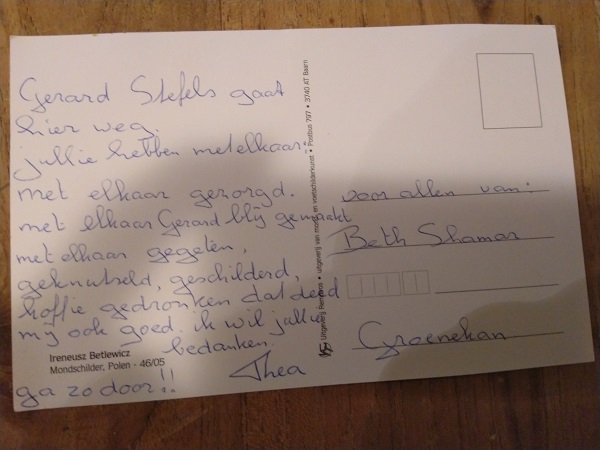 Gerard Stefels gaat
hier weg.
jullie hebben met elkaar:
met elkaar gezorgd.
met elkaar Gerard blij gemaakt
met elkaar gegeten,
geknutseld, geschilderd,
koffie gedronken dat deed
mij ook goed. ik wil jullie
bedanken.
Thea
ga zo door!!
Ireneusz Betlewicz
Mondschilder, Polen - 46/05
uitgeverij van mond- en voetschilderkunst • Postbus 797 • 3740 AT Baarn
voor allen van:
Beth Shamar
Groenekan